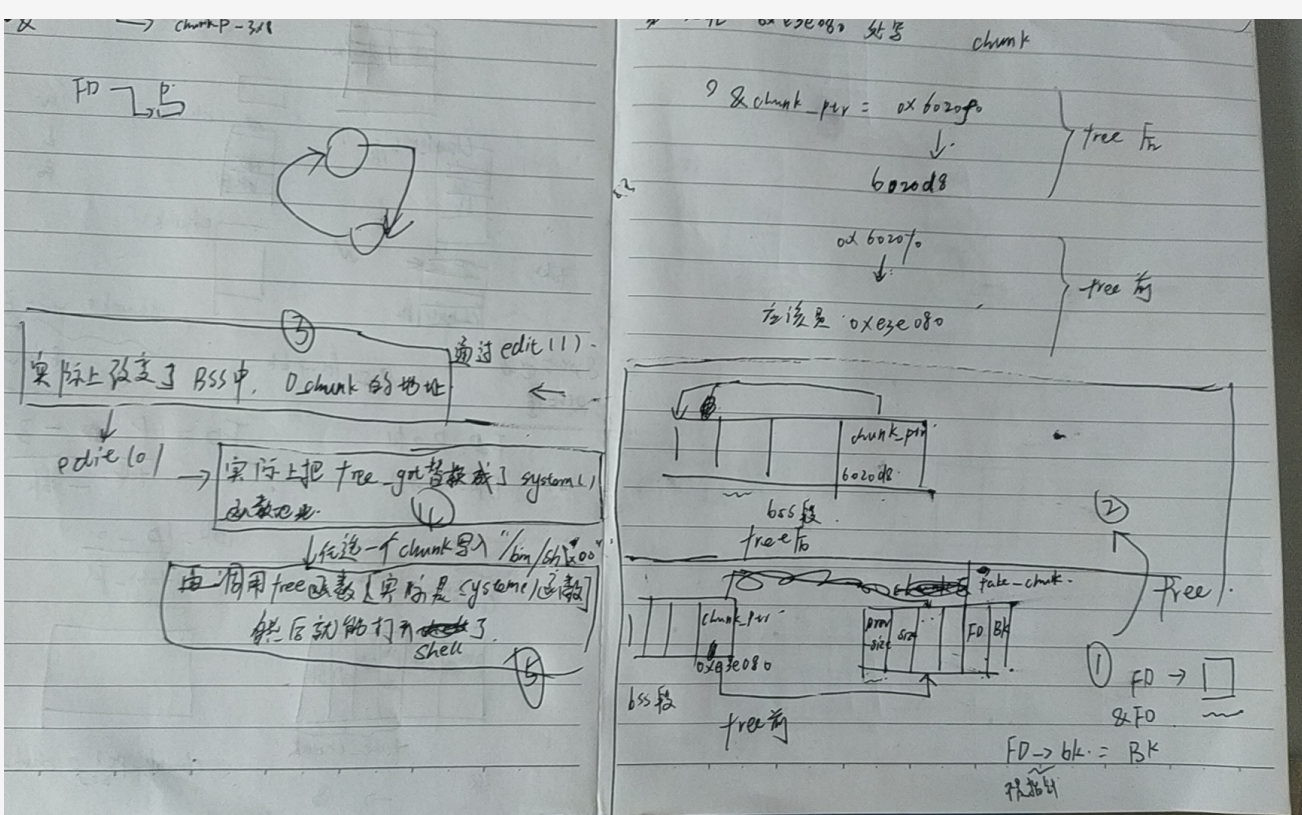 → chunkP-3x8
FD P
③
通过edit(1)
实际上改变了 BSS中, 0_chunk 的地址
←
↓
edit(0)
→ 实际上把 free_got替换成了 system()
函数地址.
④
↓任选一个chunk写入"/bin/sh\x00"
再一次调用free函数[实际是system()函数]
然后就能打开 了.
shell
⑤
0xe3e080 处写 chunk
&chunk_ptr =
↓
6020d8
free 后
↓
应该是 0xe3e080
free 前
chunk_ptr
6020d8
bss段
free后
②
free
fake_chunk
chunk_ptr
0xe3e080
prev size
size
FD
BK
bss段
free前
①
FD →
&FD
FD→bk = BK